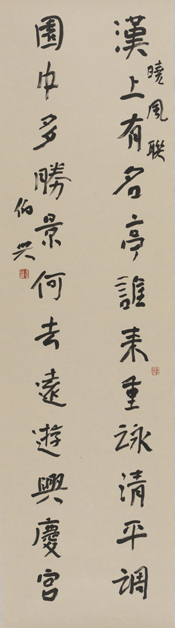 漢上有名亭誰来重詠清平調
曉風聯
園中多勝景何去遠遊興慶宮
伯兴